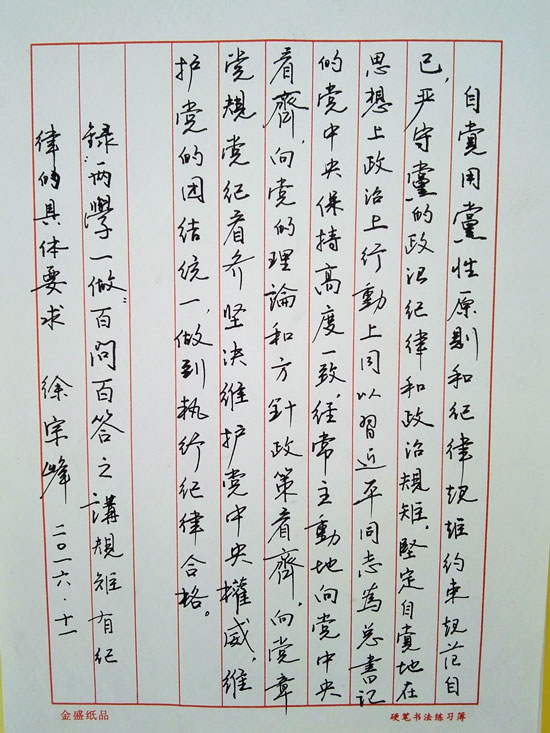 自覺用黨性原則和纪律規矩约束規范自
己,严守黨的政治纪律和政治規矩,堅定自覺地在
思想上政治上行動上同以習近平同志為总書記
的党中央保持高度一致,经常主動地向党中央
看齊,向党的理論和方針政策看齊,向党章
党規党纪看齐坚决維护党中央權威,維
护党的团结统一,做到执行纪律合格。
録"两學一做"百問百答之講規矩有纪
律的具体要求 徐宗峰 二〇一六.十一
金盛纸品
硬笔书法练习簿